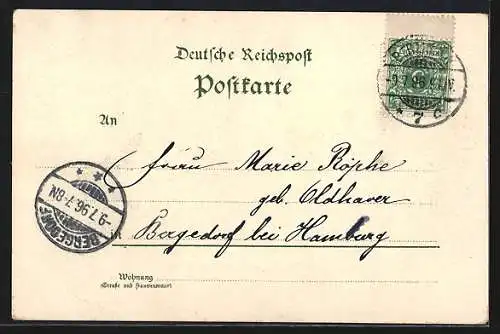 Deutsche Reichspost
Postkarte
BERLIN
-9.7.96.
* 7 c.
An
Frau Marie Röphe
geb. Oldhaver
in Bergedorf bei Hamburg
BERGEDORF
-9.7.96.7-8N.
* * *
Wohnung
(Straße und Hausnummer)